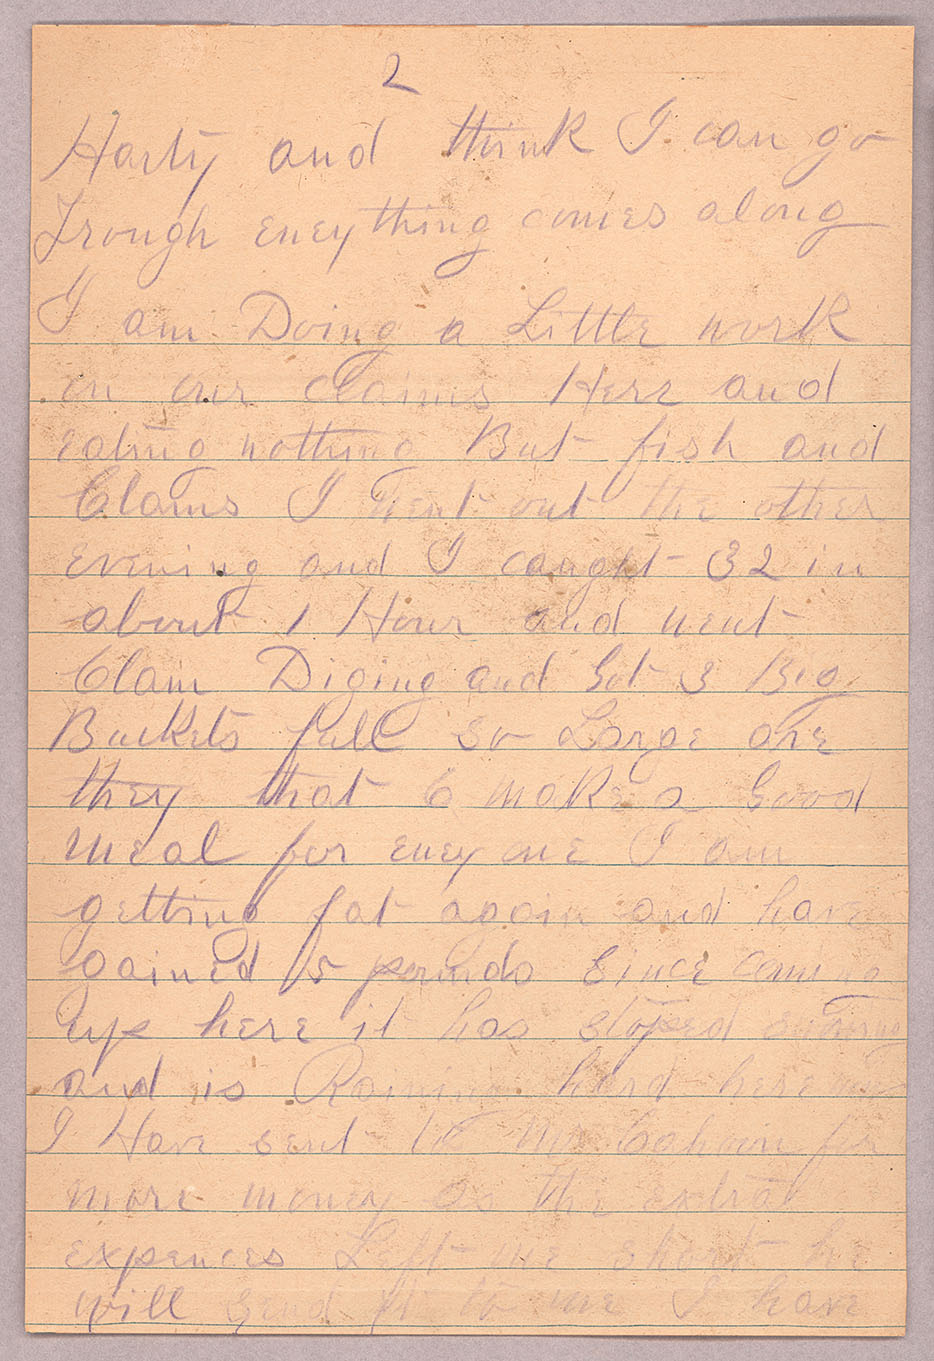 2
Harty and think I can go
Trough eney thing comes along
I am Doing a Little work
on our claims Here and
eating nothing But fish and
Clams I went out the other
evening and I caught 32 in
about 1 Hour and went
Clam Diging and Got 3 Big
Buckets full so Large are
they that 6 make a Good
meal for eney one I am
getting fat again and have
gained 5 pounds since coming
up here it has stoped
and is Raining hard here
I Have sent to Mr for
more money as the extra
expences Left me short he
will send it to me I have